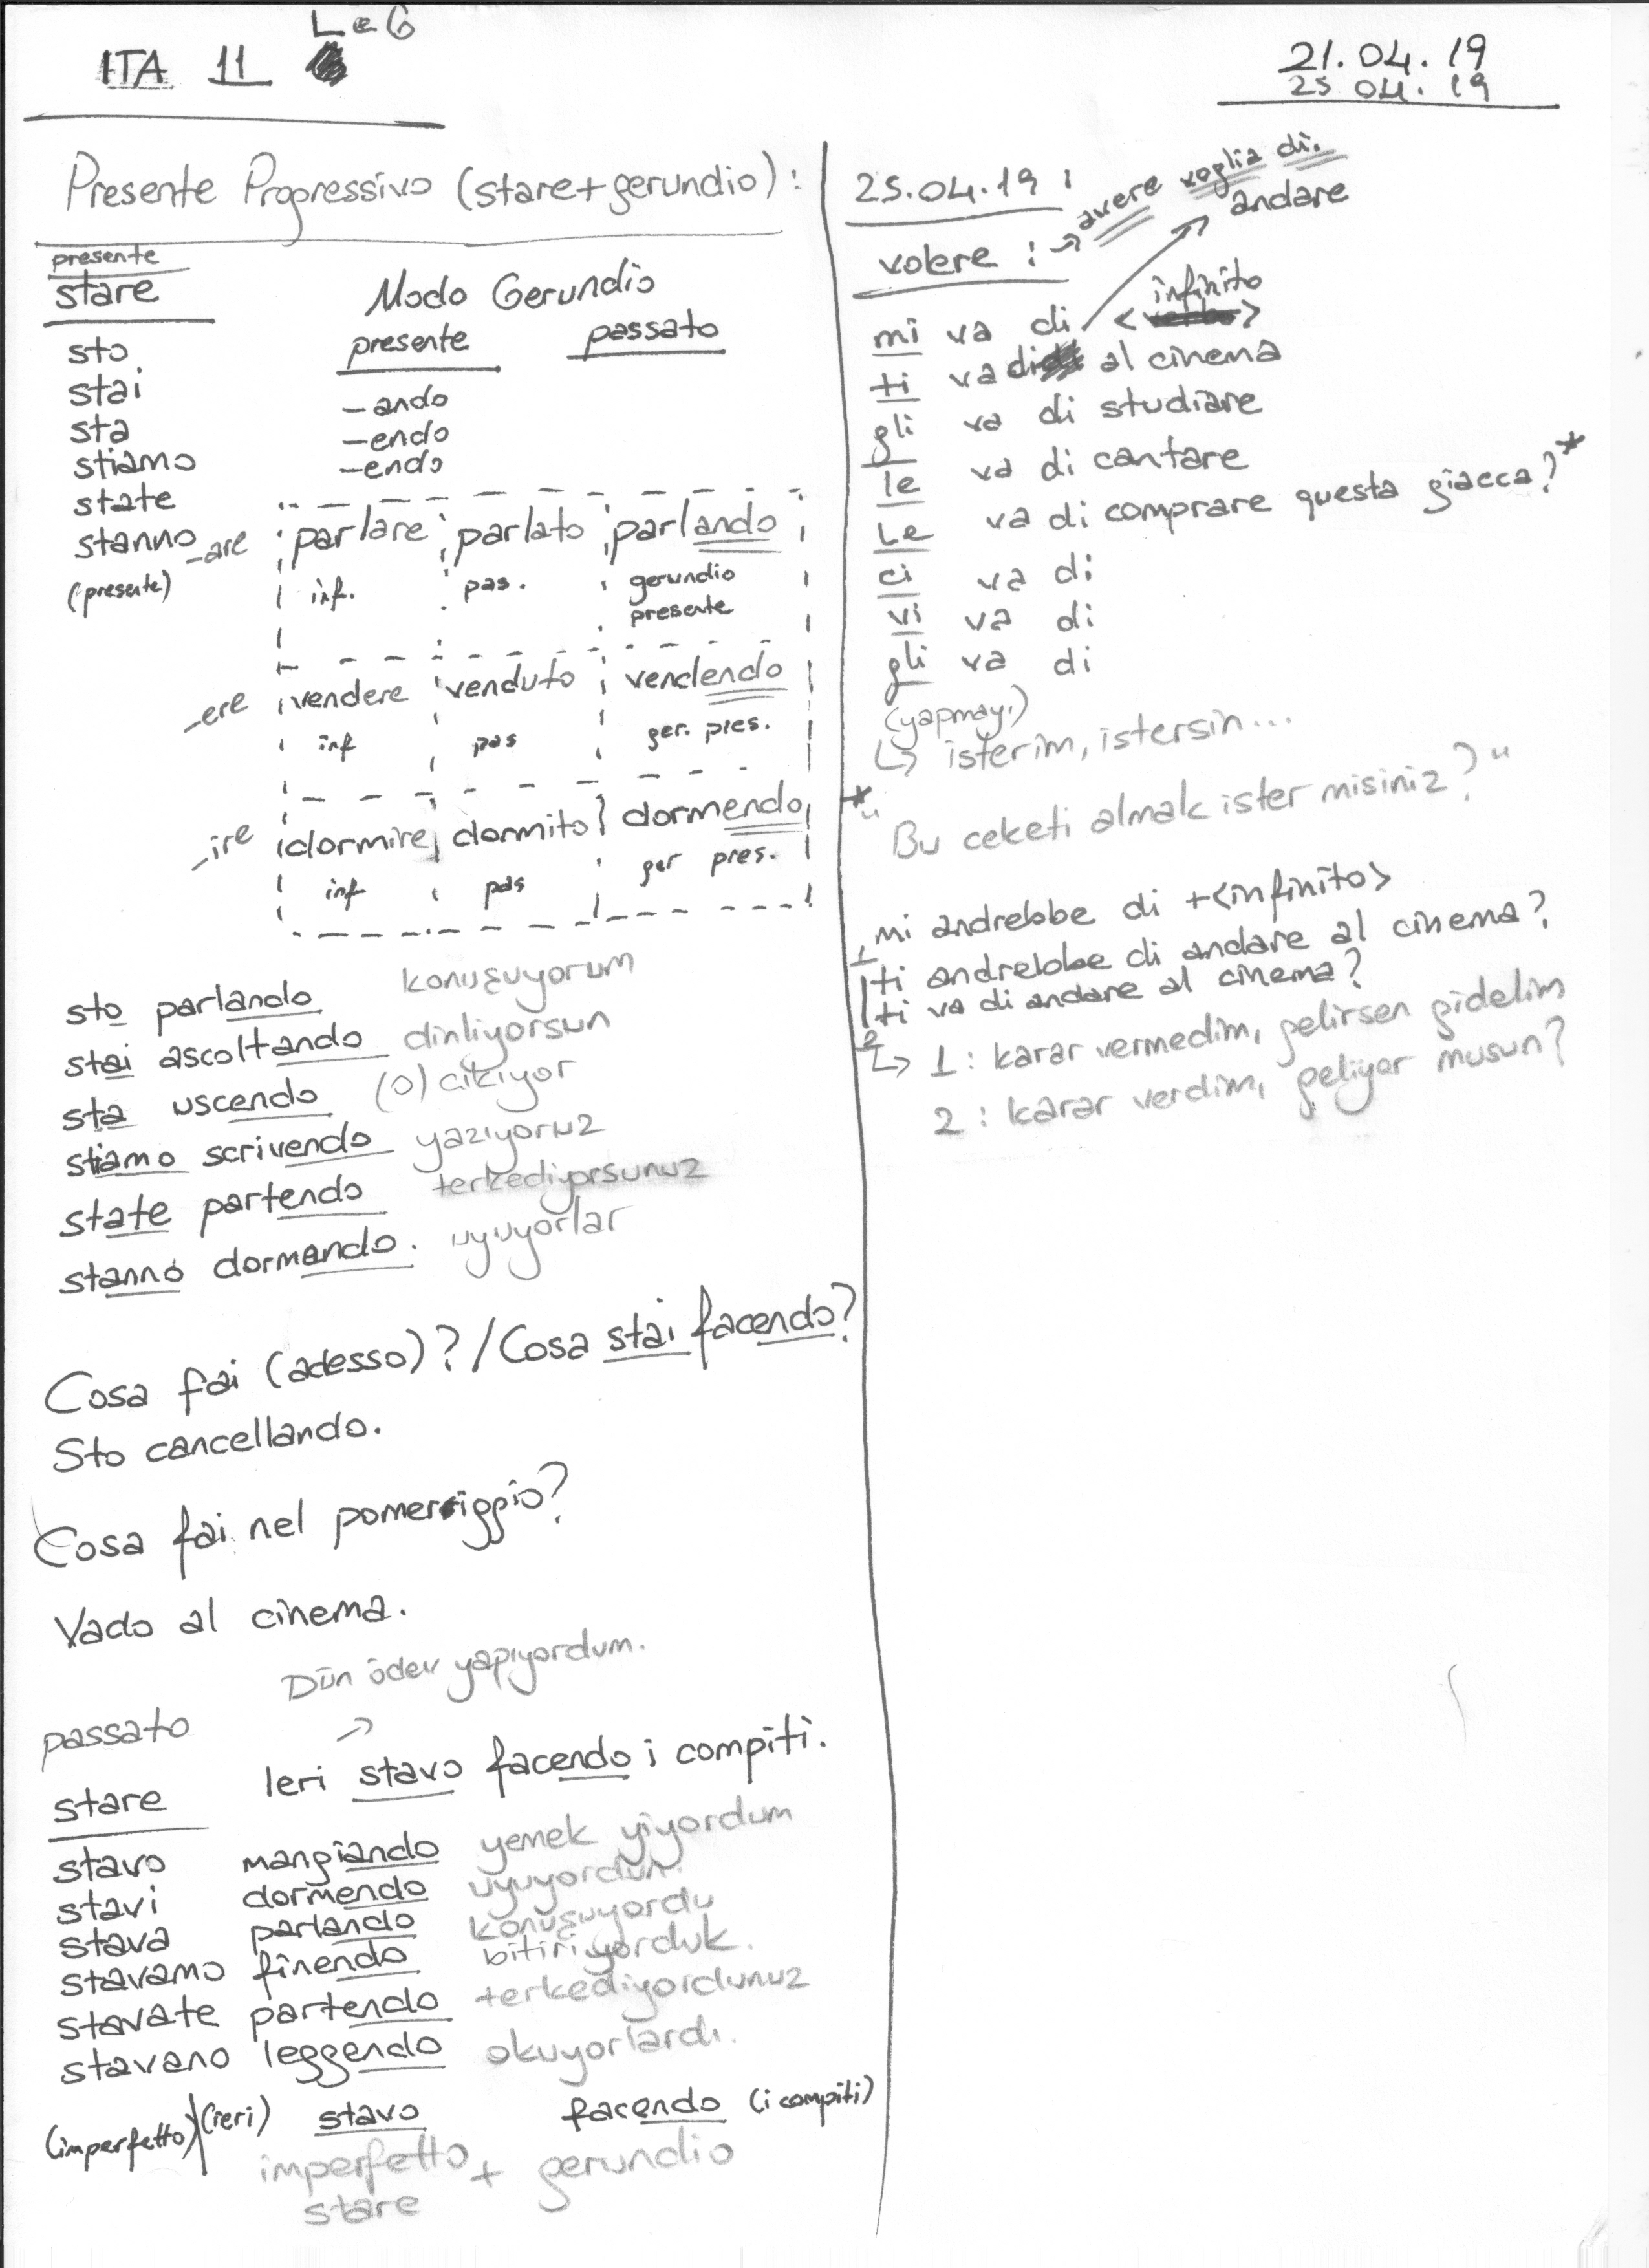 L e 6
ITA 11
21.04.19
25.04.19
Presente Progressivo (stare+gerundio):
presente
stare
Modo Gerundio
presente passato
sto
stai
sta
stiamo
state
stanno
(presente)
-ando
-endo
-endo
-are parlare parlato parlando
inf. pas. gerundio
presente
-ere vendere venduto vendendo
inf pas ger. pres.
-ire dormire dormito dormendo
inf pas ger pres.
sto parlando konuşuyorum
stai ascoltando dinliyorsun
sta uscendo (o) çıkıyor
stiamo scrivendo yazıyoruz
state partendo terkediyorsunuz
stanno dormendo. uyuyorlar
Cosa fai (adesso)? / Cosa stai facendo?
Sto cancellando.
Cosa fai nel pomeriggio?
Vado al cinema.
Dün ödev yapıyordum.
passato
→
Ieri stavo facendo i compiti.
stare
stavo mangiando yemek yiyordum
stavi dormendo uyuyordun.
stava parlando konuşuyordu
stavamo finendo bitiriyorduk.
stavate partendo terkediyordunuz
stavano leggendo okuyorlardı.
(imperfetto) (ieri) stavo facendo (i compiti)
imperfetto + gerundio
stare
25.04.19:
volere: → avere voglia di.
andare
infinito
mi va di < >
ti va di al cinema
gli va di studiare
le va di cantare
Le va di comprare questa giacca?*
ci va di
vi va di
gli va di
(yapmayı)
↳ isterim, istersin...
*"Bu ceketi almak ister misiniz?"
mi andrebbe di +<infinito>
1 ti andrebbe di andare al cinema?
2 ti va di andare al cinema?
↳ 1: karar vermedim, gelirsen gidelim
2: karar verdim, geliyor musun?